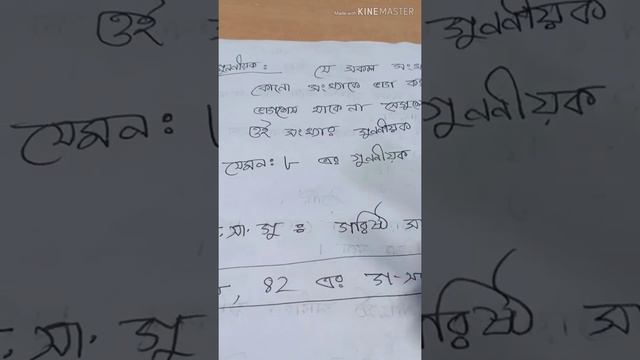 Made with KINEMASTER
গুননীয়ক : যে সকল সংখ্যা
কোনো সংখ্যাকে ভাগ কর
ভাগশেষ থাকে না সেগুলো
ওই সংখ্যার গুননীয়ক
যেমন: ৮ এর গুননীয়ক
. সা. গু : গরিষ্ঠ সা
, ৪২ এর গ.সা